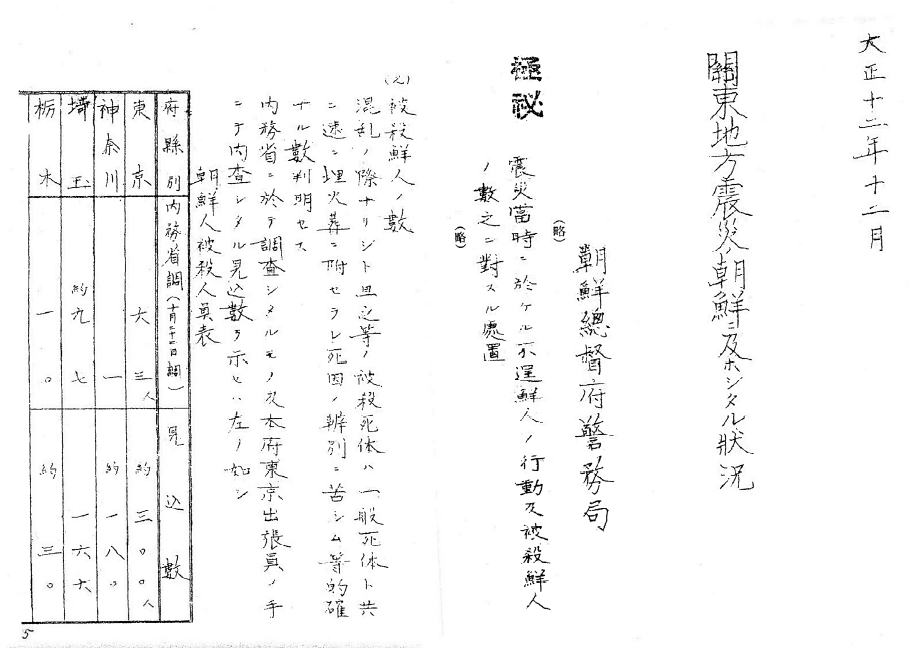 大正十二年十二月
關東地方震災ノ朝鮮ニ及ホシタル狀況
朝鮮總督府警務局
(略)
極秘
震災當時ニ於ケル不逞鮮人ノ行動及被殺鮮人
ノ數之ニ對スル處置
(略)
被殺鮮人ノ數
混乱ノ際ナリシト且之等ノ被殺死体ハ一般死体ト共
ニ速ニ埋火葬ニ附セラレ死因ノ辨別ニ苦シム等的確
ナル數判明セス
内務省ニ於テ調查シタルモノ及本府東京出張員ノ手
ニテ内查シタル見込數ヲ示セハ左ノ如シ
朝鮮人被殺人員表
府縣別 内務省調(十月二十二日調) 見込數
東京 六三人 約三〇〇人
神奈川 一 約一八〇
埼玉 約九七 一六六
栃木 一〇 約三〇
5